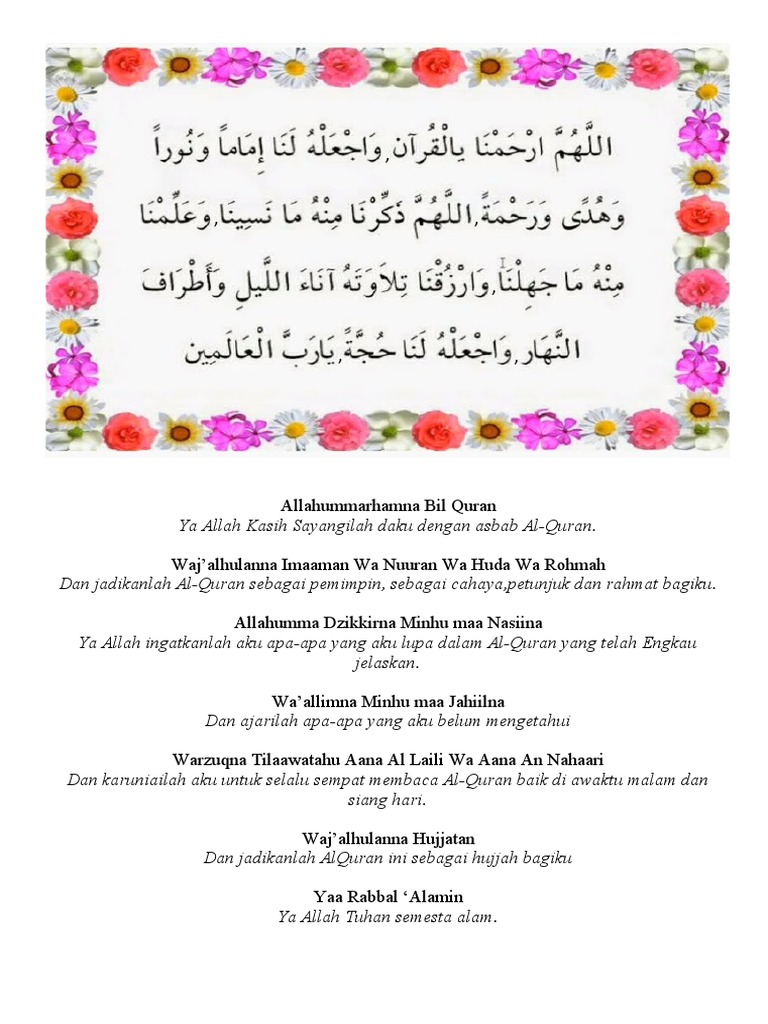 اللَّهُمَّ ارْحَمْنَا بِالْقُرْآن,وَاجْعَلْهُ لَنَا إِمَاماً وَنُوراً
وَهُدًى وَرَحْمَةً,اللَّهُمَّ ذَكِّرْنَا مِنْهُ مَا نَسِينَا,وَعَلِّمْنَا
مِنْهُ مَا جَهِلْنَا,وَارْزُقْنَا تِلاَوَتَهُ آنَاءَ اللَّيلِ وَأَطْرَافَ
النَّهَار,وَاجْعَلْهُ لَنَا حُجَّةً,يَارَبَّ الْعَالَمِين
Allahummarhamna Bil Quran
Ya Allah Kasih Sayangilah daku dengan asbab Al-Quran.
Waj’alhulanna Imaaman Wa Nuuran Wa Huda Wa Rohmah
Dan jadikanlah Al-Quran sebagai pemimpin, sebagai cahaya,petunjuk dan rahmat bagiku.
Allahumma Dzikkirna Minhu maa Nasiina
Ya Allah ingatkanlah aku apa-apa yang aku lupa dalam Al-Quran yang telah Engkau
jelaskan.
Wa’allimna Minhu maa Jahiilna
Dan ajarilah apa-apa yang aku belum mengetahui
Warzuqna Tilaawatahu Aana Al Laili Wa Aana An Nahaari
Dan karuniailah aku untuk selalu sempat membaca Al-Quran baik di awaktu malam dan
siang hari.
Waj’alhulanna Hujjatan
Dan jadikanlah AlQuran ini sebagai hujjah bagiku
Yaa Rabbal ‘Alamin
Ya Allah Tuhan semesta alam.